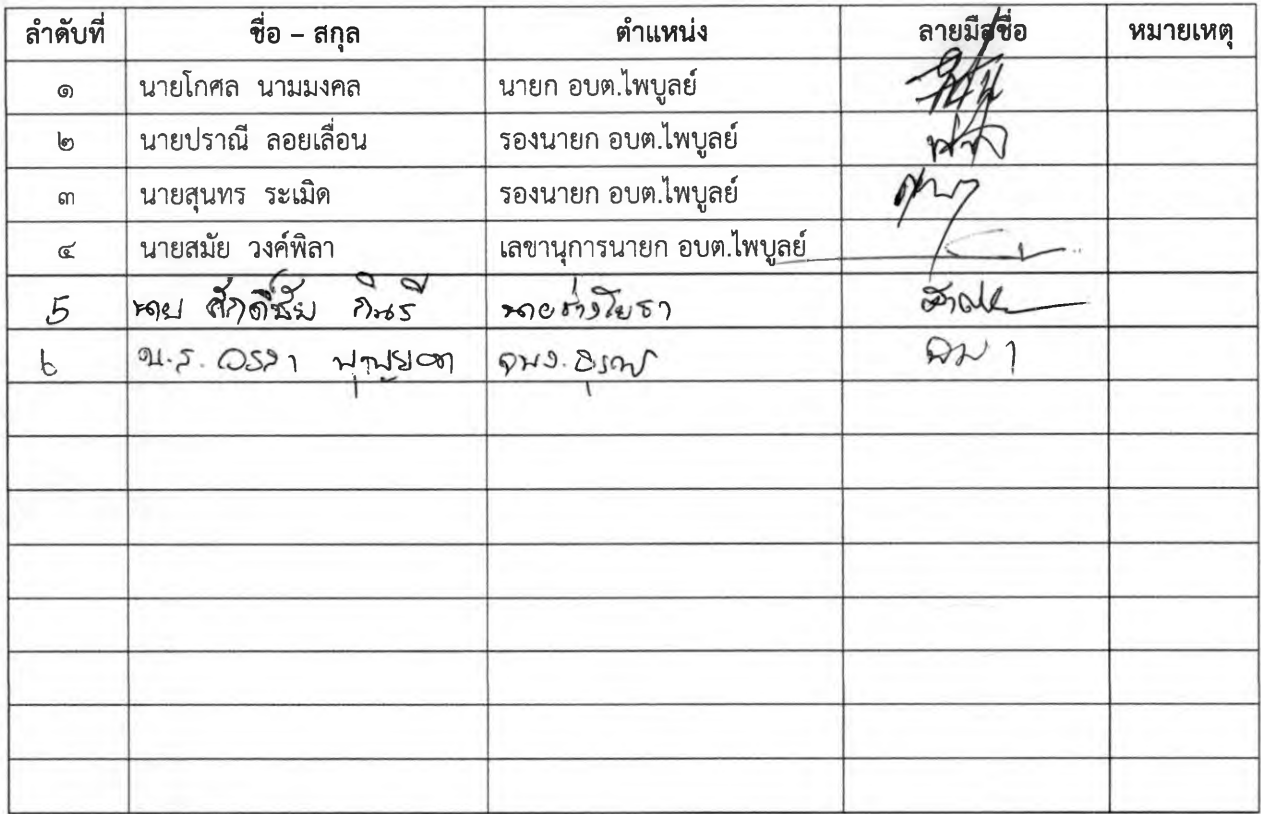 ลำดับที่ ชื่อ – สกุล ตำแหน่ง ลายมือชื่อ หมายเหตุ
๑ นายโกศล นามมงคล นายก อบต.ไพบูลย์
๒ นายปราณี ลอยเลื่อน รองนายก อบต.ไพบูลย์
๓ นายสุนทร ระเมิด รองนายก อบต.ไพบูลย์
๔ นายสมัย วงค์พิลา เลขานุการนายก อบต.ไพบูลย์
5 นาย ศักดิ์ชัย กินรี นายช่างโยธา
๖ น.ส. จพง.ธุรการ